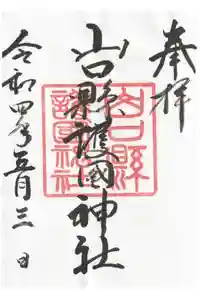 奉拝
山口縣護國神社
山口縣護國神社
令和四年五月三日